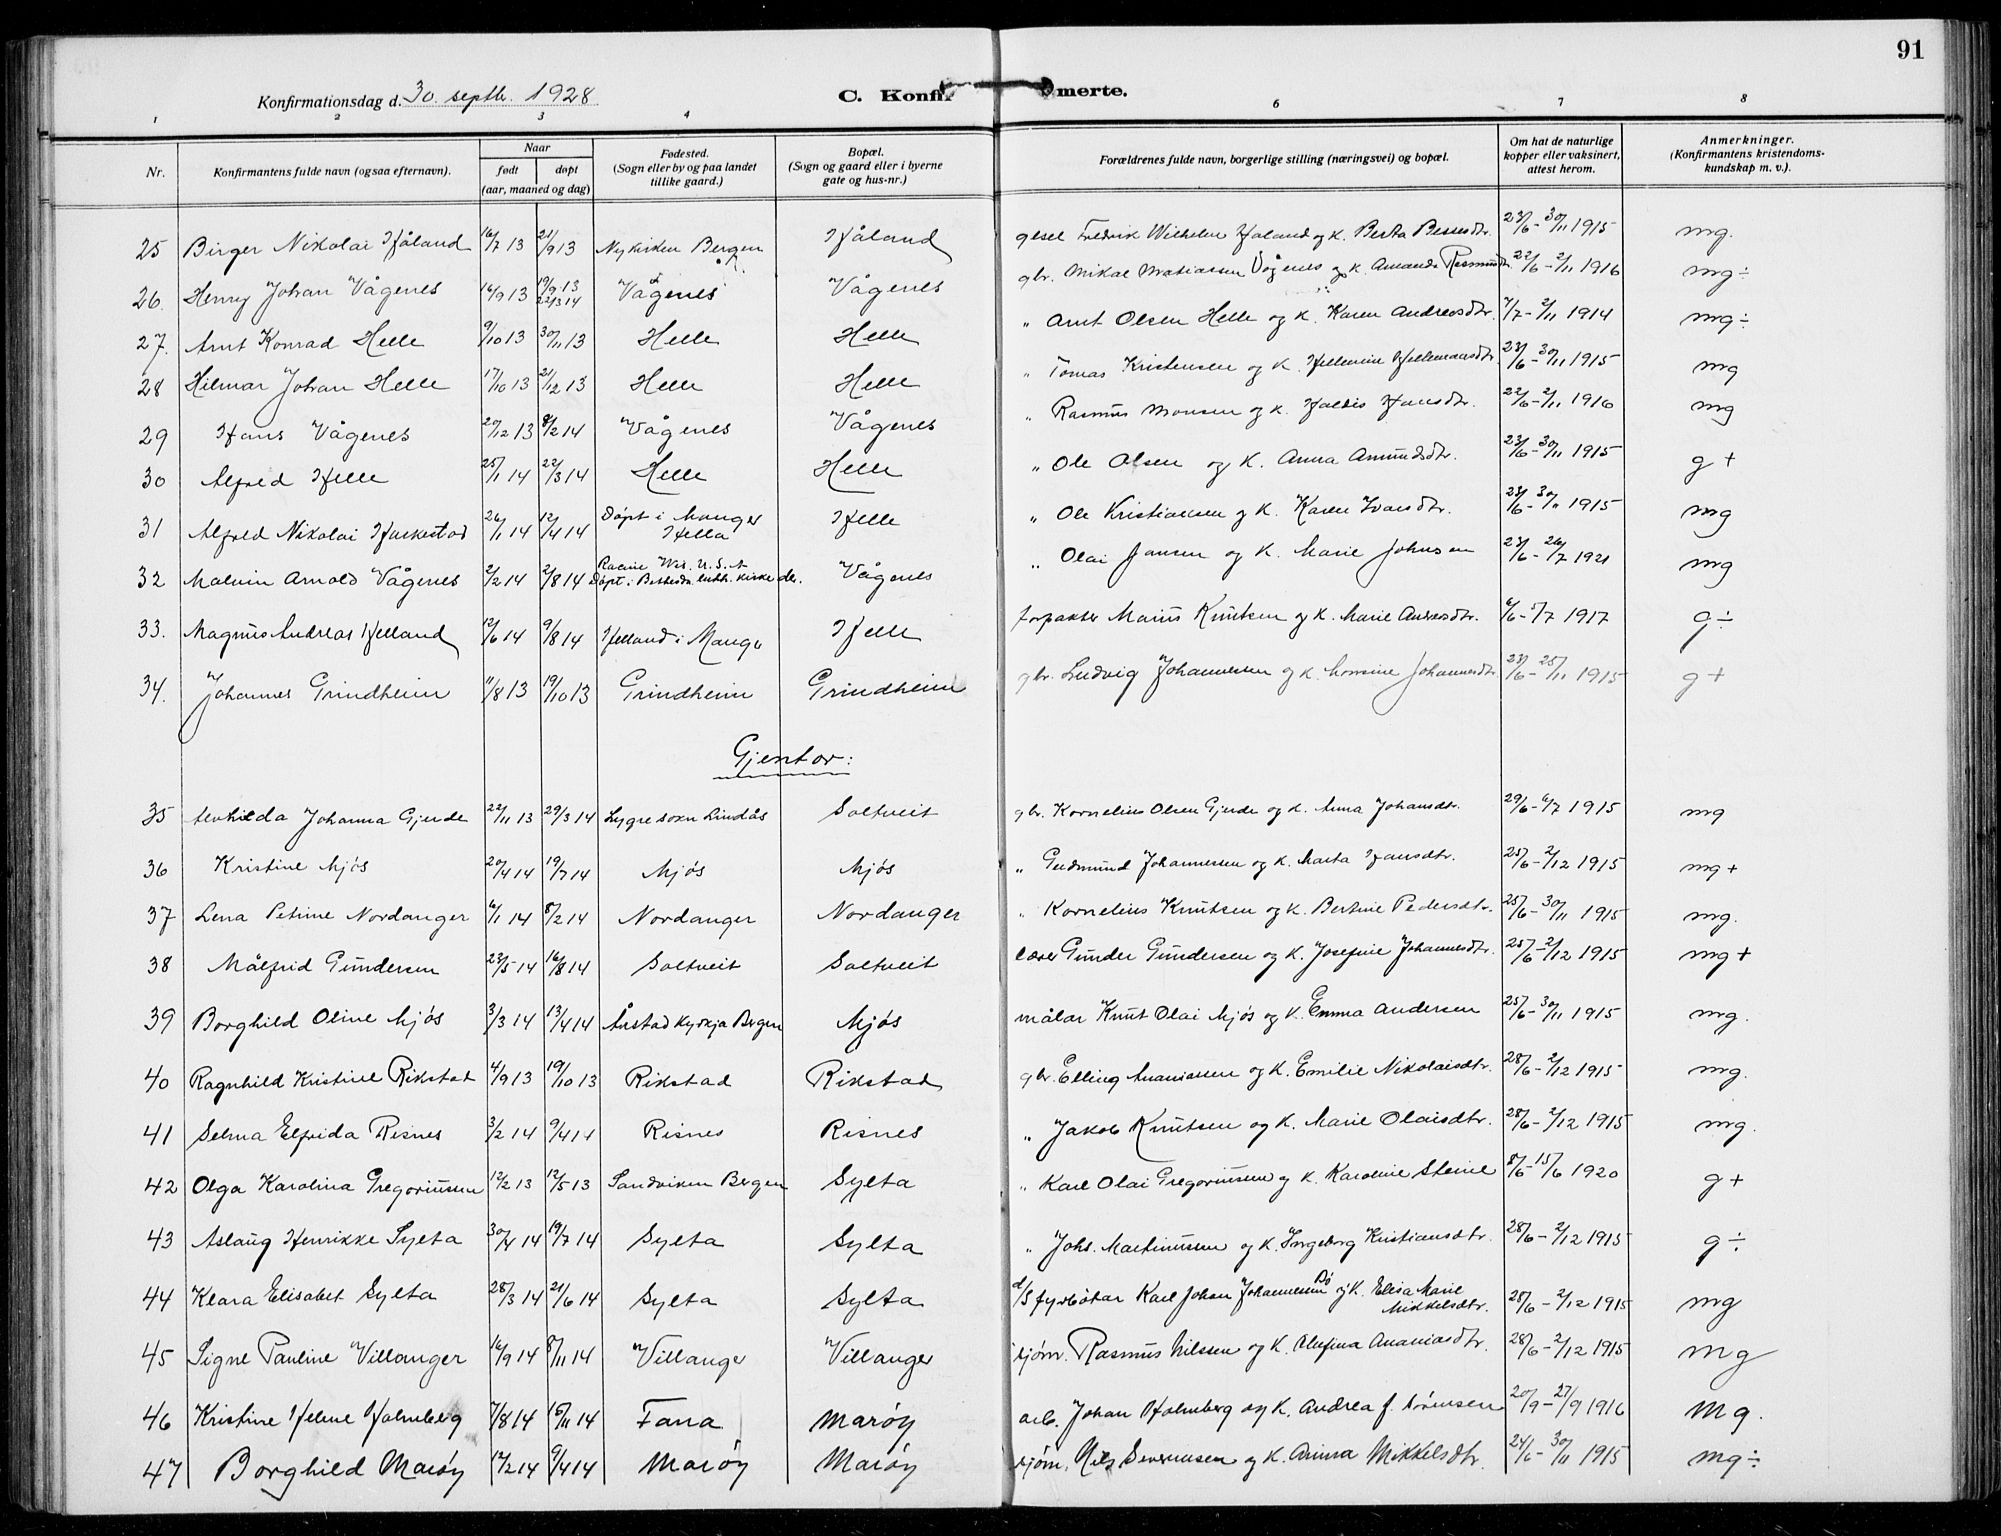 91
Konfirmationsdag d. 30. septb. 1928 C. Konfir merte.
1 2 3 4 6 7 8
Nr. Konfirmantens fulde navn (ogsaa efternavn). Naar født døpt (aar, maaned og dag) Fødested. (Sogn eller by og paa landet tillike gaard.) Bopæl. (Sogn og gaard eller i byerne gate og hus-nr.) Forældrenes fulde navn, borgerlige stilling (næringsvei) og bopæl. Om hat de naturlige kopper eller vaksinert, attest herom. Anmerkninger. (Konfirmantens kristendoms-kundskap m. v.).
25 Birger Nikolai Håland 16/7 13 21/9 13 Nykirken Bergen Håland gesel Fredrik Wilhelm Haland og k. Berta 23/6 - 30/11 1915 mg.
26. Henry Johan Vågenes 16/9 13 19/9 13 22/3 14 Vågenes Vågenes gbr. Mikal Matiassen Vågenes og k. Amanda Rasmusdtr 22/6 - 2/11 1916 mg ÷
27. Arnt Konrad Helle 9/10 13 30/11 13 Helle Helle " Arnt Olsen Helle og k. Karen Andreasdtr. 7/7 - 2/11 1914 mg ÷
28 Hilmar Johan Helle 17/10 13 21/12 13 Helle Helle " Tomas Kristensen og k. 23/6 - 30/11 1915 mg
29 Hans Vågenes 20/12 13 8/2 14 Vågenes Vågenes " Rasmus Monsen og k. Haldis Hansdtr. 22/6 - 2/11 1916 mg
30 Alfred Helle 25/1 14 22/3 14 Helle Helle " Ole Olsen og k. Anna Amundsdtr. 23/6 - 30/11 1915 g +
31 Alfred Nikolai 26/1 14 12/4 14 Døpt i Manger Hella Helle " Ole Kristiansen og k. Karen Ivarsdtr. 23/6 - 30/11 1915 mg
32 Malvin Arnold Vågenes 2/2 14 2/8 14 Racine Wis. U.S.A Døpt i Bethesda luth. kirke der. Vågenes " Olai Jansen og k. Marie Johnsen 23/6 - 26/7 1921 mg
33. Magnus Andreas Helland 12/6 14 9/8 14 Helland i Mange Helle forpakter Marius Knutsen og k. Marie Andreasdtr. 6/6 - 5/7 1917 g ÷
34. Johannes Grindheim 11/8 13 19/10 13 Grindheim Grindheim gbr. Ludvig Johannessen og k. Monsine Johannesdtr 23/6 - 25/11 1915 g +
Gjentor:
35 Alvhilda Johanna Gjerde 22/11 13 29/3 14 Lygre sokn Lindås Soltveit gbr. Kornelius Olsen Gjerde og k. Anna Johansdtr. 29/6 - 6/7 1915 mg
36 Kristine Mjøs 20/4 14 19/7 14 Mjøs Mjøs " Gudmund Johannessen og k. Marta Hansdtr. 25/6 - 2/12 1915 mg +
37 Lena Petrine Nordanger 6/1 14 8/2 14 Nordanger Nordanger " Kornelius Knutsen og k. Bertine Pedersdtr. 25/6 - 30/11 1915 mg.
38 Målfrid Gundersen 23/5 14 16/8 14 Soltveit Soltveit lærer Gunder Gundersen og k. Josefine Johannesdtr. 25/6 - 2/12 1915 mg +
39 Borghild Oline Mjøs 3/3 14 13/4 14 Årstad kyrkja Bergen Mjøs målar Knut Olai Mjøs og k. Emma Andersen 25/6 - 30/11 1915 mg.
40 Ragnhild Kristine Rikstad 4/9 13 19/10 13 Rikstad Rikstad gbr. Elling Ananiassen og k. Emilie Nikolaisdtr. 28/6 - 2/12 1915 mg.
41 Selma Elfrida Risnes 3/2 14 9/4 14 Risnes Risnes " Jakob Knutsen og k. Marie Olaisdtr. 28/6 - 2/12 1915 mg.
42 Olga Karolina Gregoriussen 12/2 13 12/5 13 Sandviken Bergen Sylta " Karl Olai Gregoriussen og k. Karoline Steine 8/6 - 15/6 1920 g +
43 Aslaug Henrikke Sylta 30/4 14 19/7 14 Sylta Sylta " Johs. Martinussen og k. Ingeborg Kristiansdtr. 28/6 - 2/12 1915 g ÷
44 Klara Elisabet Sylta 28/3 14 21/6 14 Sylta Sylta d/s fyrbøtar Karl Johan Johannessen Bø og k. Elisa Marie Mikkelsdtr. 28/6 - 2/12 1915 mg
45 Signe Pauline Villanger 16/9 14 8/11 14 Villanger Villanger sjøm. Rasmus Nilssen og k. Olufina Ananiasdtr. 28/6 - 2/12 1915 mg
46 Kristine Helene Holmberg 7/8 14 15/11 14 Fana Marøy arb. Johan Holmberg og k. Andrea f. Sørensen 20/9 - 27/9 1916 Mg.
47 Borghild Marøy 12/2 14 9/4 14 Marøy Marøy sjøm. Nils Severinsen og k. Anna Mikkelsdtr. 24/6 - 30/11 1915 mg ÷